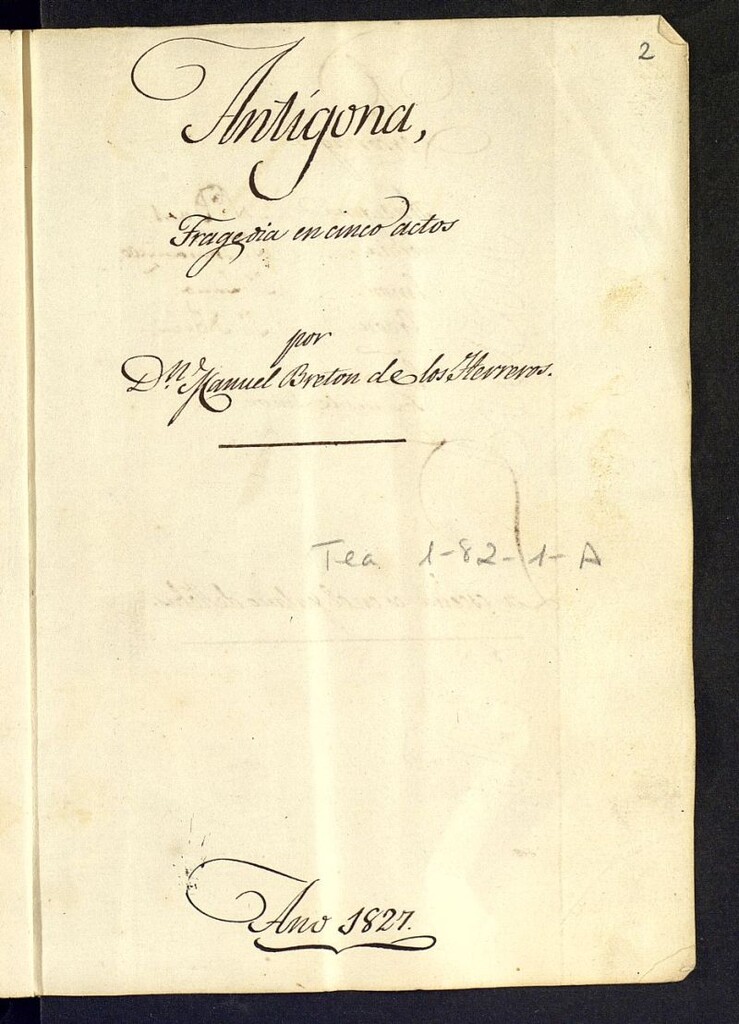 2
Antígona,
Tragedia en cinco actos
por
Dn. Manuel Breton de los Herreros.
Tea 1-82-1-A
Año 1827.